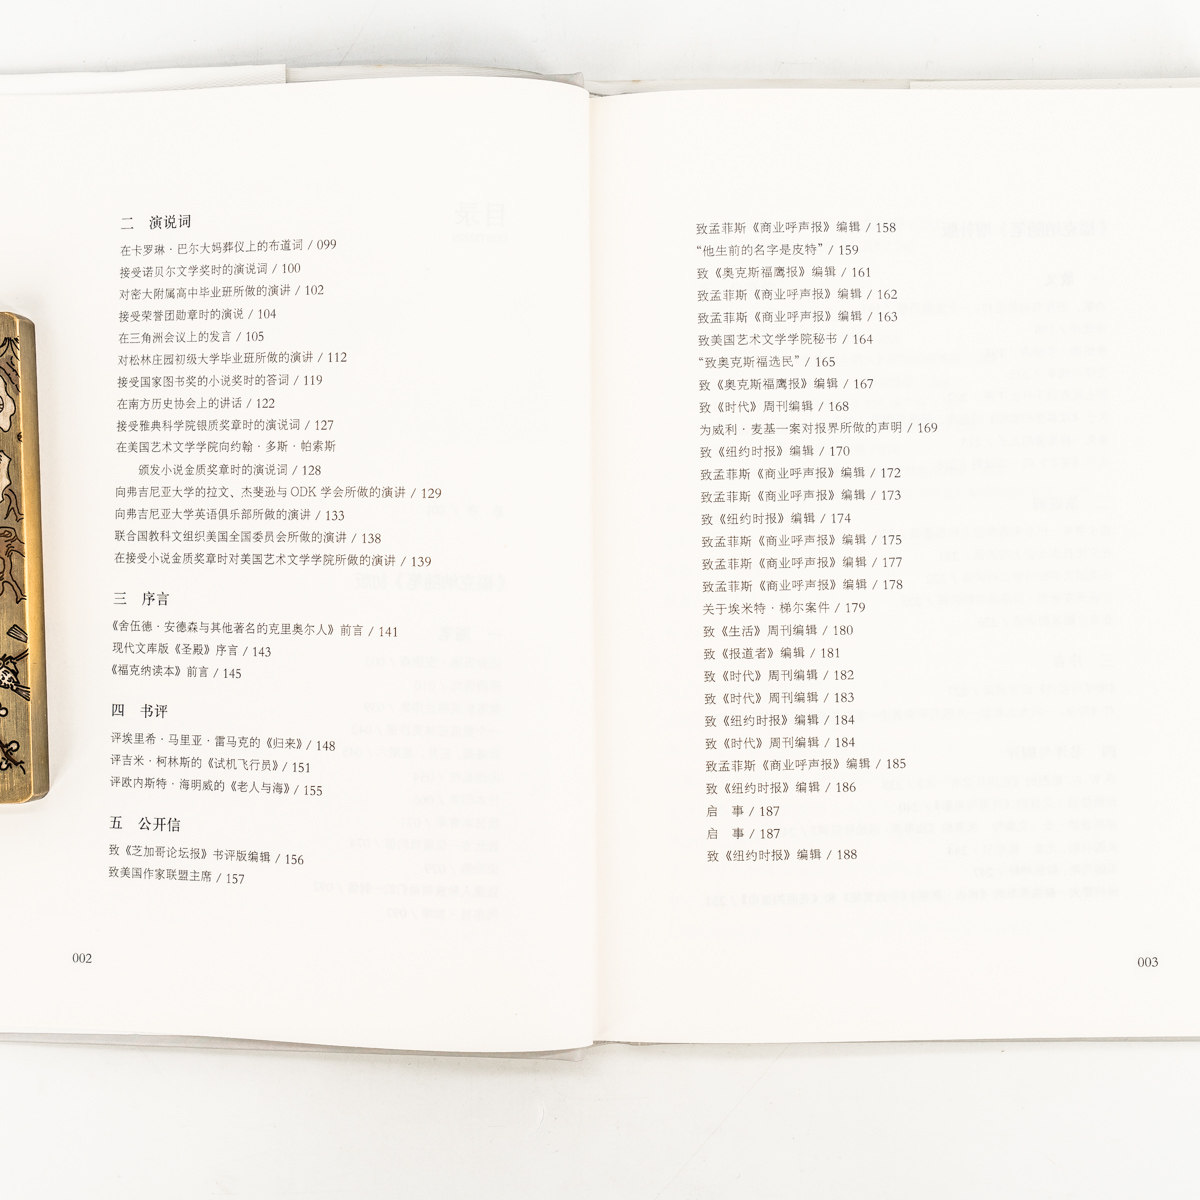 二　演说词
在卡罗琳·巴尔大妈葬仪上的布道词 / 099
接受诺贝尔文学奖时的演说词 / 100
对密大附属高中毕业班所做的演讲 / 102
接受荣誉团勋章时的演说 / 104
在三角洲会议上的发言 / 105
对松林庄园初级大学毕业班所做的演讲 / 112
接受国家图书奖的小说奖时的答词 / 119
在南方历史协会上的讲话 / 122
接受雅典科学院银质奖章时的演说词 / 127
在美国艺术文学学院向约翰·多斯·帕索斯
颁发小说金质奖章时的演说词 / 128
向弗吉尼亚大学的拉文、杰斐逊与 ODK 学会所做的演讲 / 129
向弗吉尼亚大学英语俱乐部所做的演讲 / 133
联合国教科文组织美国全国委员会所做的演讲 / 138
在接受小说金质奖章时对美国艺术文学学院所做的演讲 / 139
三　序言
《舍伍德·安德森与其他著名的克里奥尔人》前言 / 141
现代文库版《圣殿》序言 / 143
《福克纳读本》前言 / 145
四　书评
评埃里希·马里亚·雷马克的《归来》/ 148
评吉米·柯林斯的《试机飞行员》/ 151
评欧内斯特·海明威的《老人与海》/ 155
五　公开信
致《芝加哥论坛报》书评版编辑 / 156
致美国作家联盟主席 / 157
002
致孟菲斯《商业呼声报》编辑 / 158
“他生前的名字是皮特” / 159
致《奥克斯福鹰报》编辑 / 161
致孟菲斯《商业呼声报》编辑 / 162
致孟菲斯《商业呼声报》编辑 / 163
致美国艺术文学学院秘书 / 164
“致奥克斯福选民” / 165
致《奥克斯福鹰报》编辑 / 167
致《时代》周刊编辑 / 168
为威利·麦基一案对报界所做的声明 / 169
致《纽约时报》编辑 / 170
致孟菲斯《商业呼声报》编辑 / 172
致孟菲斯《商业呼声报》编辑 / 173
致《纽约时报》编辑 / 174
致孟菲斯《商业呼声报》编辑 / 175
致孟菲斯《商业呼声报》编辑 / 177
致孟菲斯《商业呼声报》编辑 / 178
关于埃米特·梯尔案件 / 179
致《生活》周刊编辑 / 180
致《报道者》编辑 / 181
致《时代》周刊编辑 / 182
致《时代》周刊编辑 / 183
致《纽约时报》编辑 / 184
致《时代》周刊编辑 / 184
致孟菲斯《商业呼声报》编辑 / 185
致《纽约时报》编辑 / 186
启　事 / 187
启　事 / 187
致《纽约时报》编辑 / 188
003